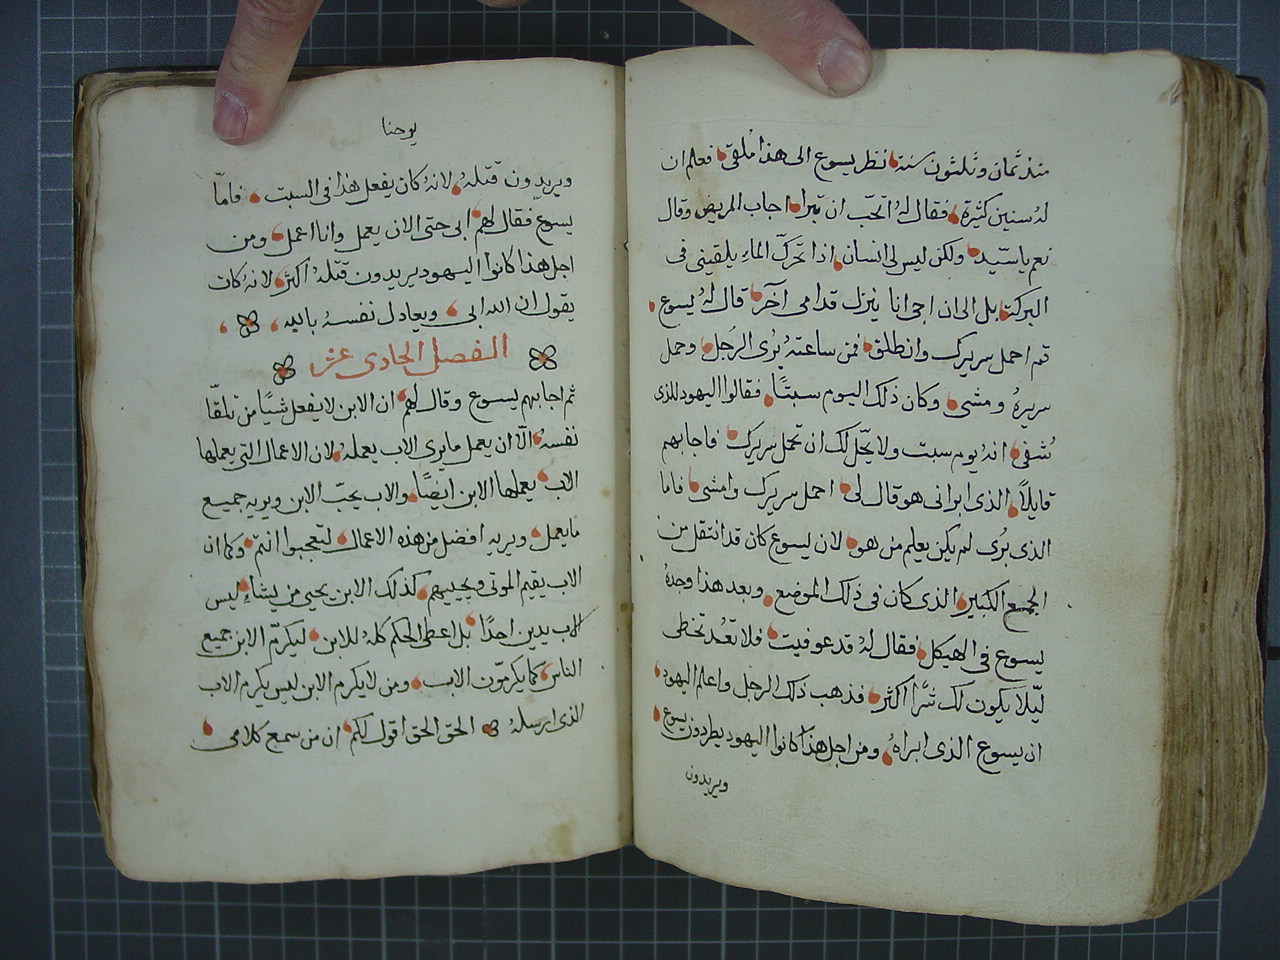 منذ ثمان وثلثون سنة نظر يسوع الى هذا مُلقى فعلم ان
له سنين كثرة فقال لهُ اتحّب ان تبرا اجاب المريض وقال
نعم يا سّيد ولكن ليس لى انسان اذا تحّرك الماء يلقينى فى
البركة بل الى ان اجى انا ينزل قدامى آخر قال لهُ يسوع
قم احمل سريرك وانطلق فمن ساعته بُرى الرجُل وحمل
سريرهُ ومشى وكان ذلك اليوم سبتًا فقالوا اليهود للذى
شُفى انه يوم سبت ولا يحّل لك ان تحمل سريرك فاجابهم
قايلاً الذى ابرانى هو قال لى احمل سريرك وامشى فاما
الذى بُرى لم يكن يعلم من هو لان يسوع كان قد انتقل من
الجمع الكبير الذى كان فى ذلك الموضع وبعد هذا وجدهُ
يسوع فى الهيكل فقال لهُ قد عوفيت فلا تعُد تخطى
ليّلا يكون لك شرًا اكثر فذهب ذلك الرجل واعلم اليهود
ان يسوع الذى ابراهُ ومن اجل هذا كانوا اليهود يطردون يسوع
ويريدون
يوحنا
ويريدون قتلهُ لانهُ كان يفعل هذا فى السبت فامّا
يسوع فقال لهم ابى حتى الان يعمل وانا اعمل ومن
اجل هذا كانوا اليهود يريدون قتلهُ اكثر لانهُ كان
يقول ان الله ابى ويعادل نفسهُ بالله
الفصل الحادى عشر
ثم اجابهم يسوع وقال لهم ان الابن لا يفعل شيًا من تلقّا
نفسهُ الّا ان يعمل ما يرى الاب يعملهُ لان الاعمال التى يعملها
الاب يعملها الابن ايضًا والاب يحبّ الابن ويريه جميع
ما يعمل ويريه افضل من هذه الاعمال لتعجبوا انتم وكما ان
الاب يقيم الموتى ويحييهم كذلك الابن يحيى من يشاء ليس
الاب يدين احدًا بل اعطى الحكم كلهُ للابن ليكرّم الابن جميع
الناس كما يكرمّون الاب ومن لا يكرم الابن ليس يكرم الاب
الذى ارسلهُ الحق الحق اقول لكم ان من سمع كلامى